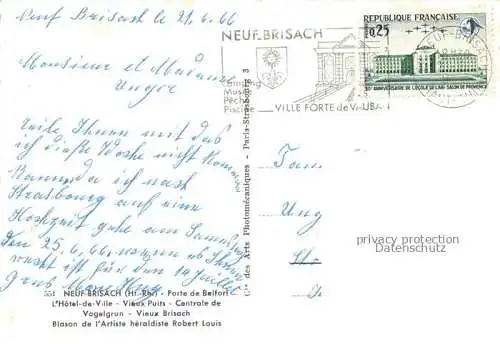 Neuf Brisach le 21.6.66
Monsieur et Madame
Unger
Teile Ihnen mit das
ich diese Woche nicht kommen
kann da ich nach
Strasbourg auf eine
Hochzeit gehe am Samstag
den 25.6.66. wenn ob Ihnen
recht ist für den 14 Juillet
554 NEUF-BRISACH (Ht-Rhin) - Porte de Belfort
L'Hôtel-de-Ville - Vieux Puits - Centrale de
Vogelgrun - Vieux Brisach
Blason de l'Artiste héraldiste Robert Louis
Cie des Arts Photomécaniques - Paris-Strasbourg 3
NEUF-BRISACH
Camping
Musée
Pêche
Piscine
VILLE FORTE de VAUBAN
RÉPUBLIQUE FRANÇAISE
0,25
30e ANNIVERSAIRE DE L'ÉCOLE DE L'AIR - SALON DE PROVENCE
NEUF-BRISACH
Fam
Ung
privacy protection
Datenschutz